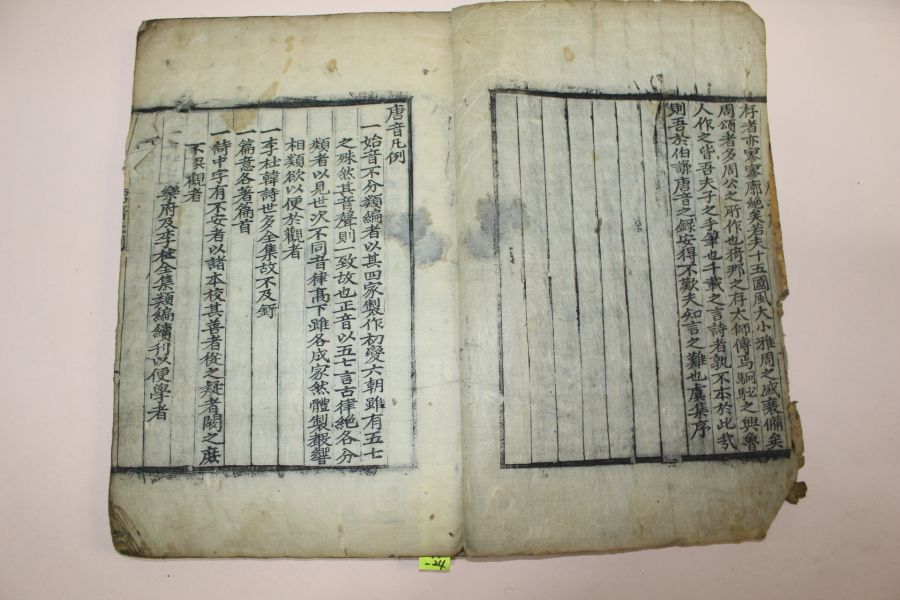 存者亦寥寥廓絶矣若夫十五國風大小雅周之盛衰備矣
周頌者多周公之所作也猗那之存太師傳焉駉駜之興魯
人作之皆吾夫子之手筆也千載之言詩者孰不本於此哉
則吾於伯謙唐音之錄安得不歎夫知言之難也虞集序
唐音凡例
一始音不分類編者以其四家製作初變六朝雖有五七
之殊然其音聲則一致故也正音以五七言古律絶各分
類者以見世次不同音律髙下雖各成家然體製聲響
相類欲以便於觀者
一李杜韓詩世多全集故不及録
一篇意各著篇首
一詩中字有不安者以諸本校其善者從之疑者闕之庶
不誤觀者
樂府及李杜全集類編續刊以便學者
-24